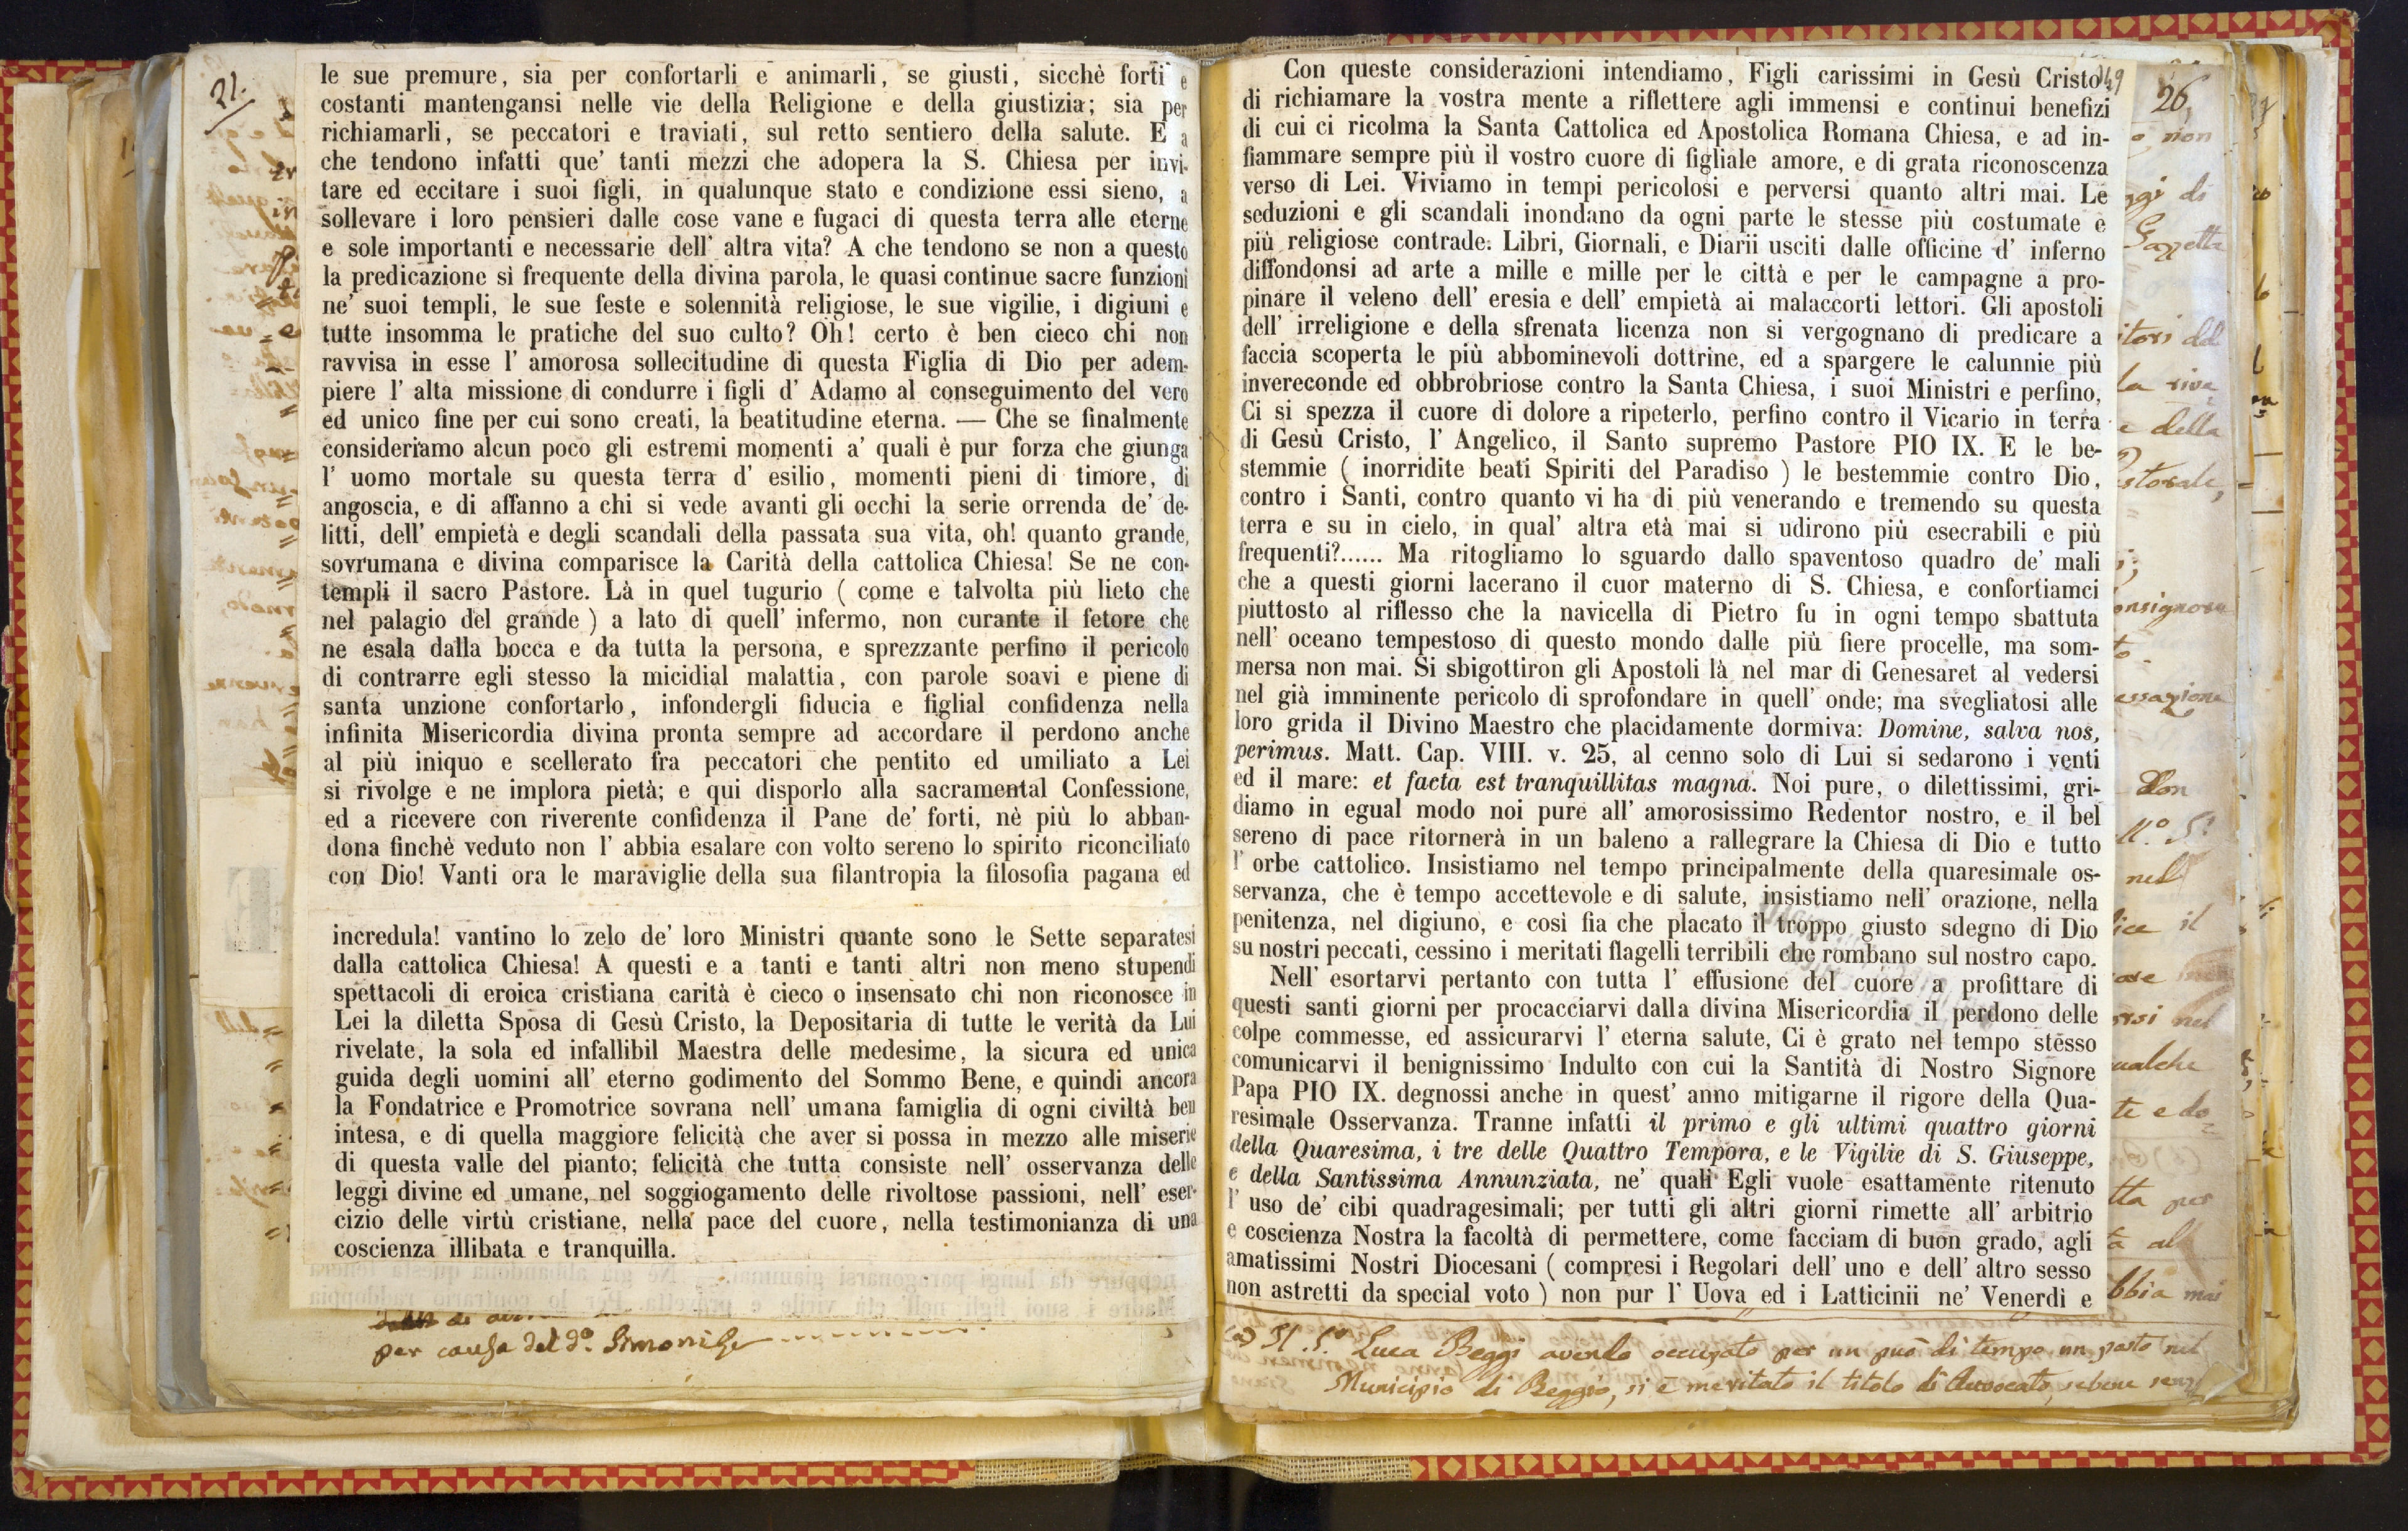 21.
le sue premure, sia per confortarli e animarli, se giusti, sicchè forti e
costanti mantengansi nelle vie della Religione e della giustizia; sia per
richiamarli, se peccatori e traviati, sul retto sentiero della salute. E a
che tendono infatti que' tanti mezzi che adopera la S. Chiesa per invi-
tare ed eccitare i suoi figli, in qualunque stato e condizione essi sieno, a
sollevare i loro pensieri dalle cose vane e fugaci di questa terra alle eterne
e sole importanti e necessarie dell' altra vita? A che tendono se non a questo
la predicazione sì frequente della divina parola, le quasi continue sacre funzioni
ne' suoi templi, le sue feste e solennità religiose, le sue vigilie, i digiuni e
tutte insomma le pratiche del suo culto? Oh! certo è ben cieco chi non
ravvisa in esse l' amorosa sollecitudine di questa Figlia di Dio per adem-
piere l' alta missione di condurre i figli d' Adamo al conseguimento del vero
ed unico fine per cui sono creati, la beatitudine eterna. — Che se finalmente
consideriamo alcun poco gli estremi momenti a' quali è pur forza che giunga
l' uomo mortale su questa terra d' esilio, momenti pieni di timore, di
angoscia, e di affanno a chi si vede avanti gli occhi la serie orrenda de' de-
litti, dell' empietà e degli scandali della passata sua vita, oh! quanto grande,
sovrumana e divina comparisce la Carità della cattolica Chiesa! Se ne con-
templi il sacro Pastore. Là in quel tugurio ( come e talvolta più lieto che
nel palagio del grande ) a lato di quell' infermo, non curante il fetore che
ne esala dalla bocca e da tutta la persona, e sprezzante perfino il pericolo
di contrarre egli stesso la micidial malattia, con parole soavi e piene di
santa unzione confortarlo, infondergli fiducia e figlial confidenza nella
infinita Misericordia divina pronta sempre ad accordare il perdono anche
al più iniquo e scellerato fra peccatori che pentito ed umiliato a Lei
si rivolge e ne implora pietà; e qui disporlo alla sacramental Confessione,
ed a ricevere con riverente confidenza il Pane de' forti, nè più lo abban-
dona finchè veduto non l' abbia esalare con volto sereno lo spirito riconciliato
con Dio! Vanti ora le maraviglie della sua filantropia la filosofia pagana ed
incredula! vantino lo zelo de' loro Ministri quante sono le Sette separatesi
dalla cattolica Chiesa! A questi e a tanti e tanti altri non meno stupendi
spettacoli di eroica cristiana carità è cieco o insensato chi non riconosce in
Lei la diletta Sposa di Gesù Cristo, la Depositaria di tutte le verità da Lui
rivelate, la sola ed infallibil Maestra delle medesime, la sicura ed unica
guida degli uomini all' eterno godimento del Sommo Bene, e quindi ancora
la Fondatrice e Promotrice sovrana nell' umana famiglia di ogni civiltà ben
intesa, e di quella maggiore felicità che aver si possa in mezzo alle miserie
di questa valle del pianto; felicità che tutta consiste nell' osservanza delle
leggi divine ed umane, nel soggiogamento delle rivoltose passioni, nell' eser-
cizio delle virtù cristiane, nella pace del cuore, nella testimonianza di una
coscienza illibata e tranquilla.
per causa del d.o
Con queste considerazioni intendiamo, Figli carissimi in Gesù Cristo
di richiamare la vostra mente a riflettere agli immensi e continui benefizi
di cui ci ricolma la Santa Cattolica ed Apostolica Romana Chiesa, e ad in-
fiammare sempre più il vostro cuore di figliale amore, e di grata riconoscenza
verso di Lei. Viviamo in tempi pericolosi e perversi quanto altri mai. Le
seduzioni e gli scandali inondano da ogni parte le stesse più costumate e
più religiose contrade. Libri, Giornali, e Diarii usciti dalle officine d' inferno
diffondonsi ad arte a mille e mille per le città e per le campagne a pro-
pinare il veleno dell' eresia e dell' empietà ai malaccorti lettori. Gli apostoli
dell' irreligione e della sfrenata licenza non si vergognano di predicare a
faccia scoperta le più abbominevoli dottrine, ed a spargere le calunnie più
invereconde ed obbrobriose contro la Santa Chiesa, i suoi Ministri e perfino,
Ci si spezza il cuore di dolore a ripeterlo, perfino contro il Vicario in terra
di Gesù Cristo, l' Angelico, il Santo supremo Pastore PIO IX. E le be-
stemmie ( inorridite beati Spiriti del Paradiso ) le bestemmie contro Dio,
contro i Santi, contro quanto vi ha di più venerando e tremendo su questa
terra e su in cielo, in qual' altra età mai si udirono più esecrabili e più
frequenti?...... Ma ritogliamo lo sguardo dallo spaventoso quadro de' mali
che a questi giorni lacerano il cuor materno di S. Chiesa, e confortiamci
piuttosto al riflesso che la navicella di Pietro fu in ogni tempo sbattuta
nell' oceano tempestoso di questo mondo dalle più fiere procelle, ma som-
mersa non mai. Si sbigottiron gli Apostoli là nel mar di Genesaret al vedersi
nel già imminente pericolo di sprofondare in quell' onde; ma svegliatosi alle
loro grida il Divino Maestro che placidamente dormiva: Domine, salva nos,
perimus. Matt. Cap. VIII. v. 25, al cenno solo di Lui si sedarono i venti
ed il mare: et facta est tranquillitas magna. Noi pure, o dilettissimi, gri-
diamo in egual modo noi pure all' amorosissimo Redentor nostro, e il bel
sereno di pace ritornerà in un baleno a rallegrare la Chiesa di Dio e tutto
l' orbe cattolico. Insistiamo nel tempo principalmente della quaresimale os-
servanza, che è tempo accettevole e di salute, insistiamo nell' orazione, nella
penitenza, nel digiuno, e così fia che placato il troppo giusto sdegno di Dio
su nostri peccati, cessino i meritati flagelli terribili che rombano sul nostro capo.
Nell' esortarvi pertanto con tutta l' effusione del cuore a profittare di
questi santi giorni per procacciarvi dalla divina Misericordia il perdono delle
colpe commesse, ed assicurarvi l' eterna salute, Ci è grato nel tempo stesso
comunicarvi il benignissimo Indulto con cui la Santità di Nostro Signore
Papa PIO IX. degnossi anche in quest' anno mitigarne il rigore della Qua-
resimale Osservanza. Tranne infatti il primo e gli ultimi quattro giorni
della Quaresima, i tre delle Quattro Tempora, e le Vigilie di S. Giuseppe,
e della Santissima Annunziata, ne' quali Egli vuole esattamente ritenuto
l' uso de' cibi quadragesimali; per tutti gli altri giorni rimette all' arbitrio
e coscienza Nostra la facoltà di permettere, come facciam di buon grado, agli
amatissimi Nostri Diocesani ( compresi i Regolari dell' uno e dell' altro sesso
non astretti da special voto ) non pur l' Uova ed i Latticinii ne' Venerdì e
Luca Beggi avendo occupato per un può di tempo un posto nel
Municipio di Reggio, si è meritato il titolo di Avvocato, sebene
149
26
non
di
Gazzetta
la
della
Don
nel
il
nel
qualche
per
al
mai